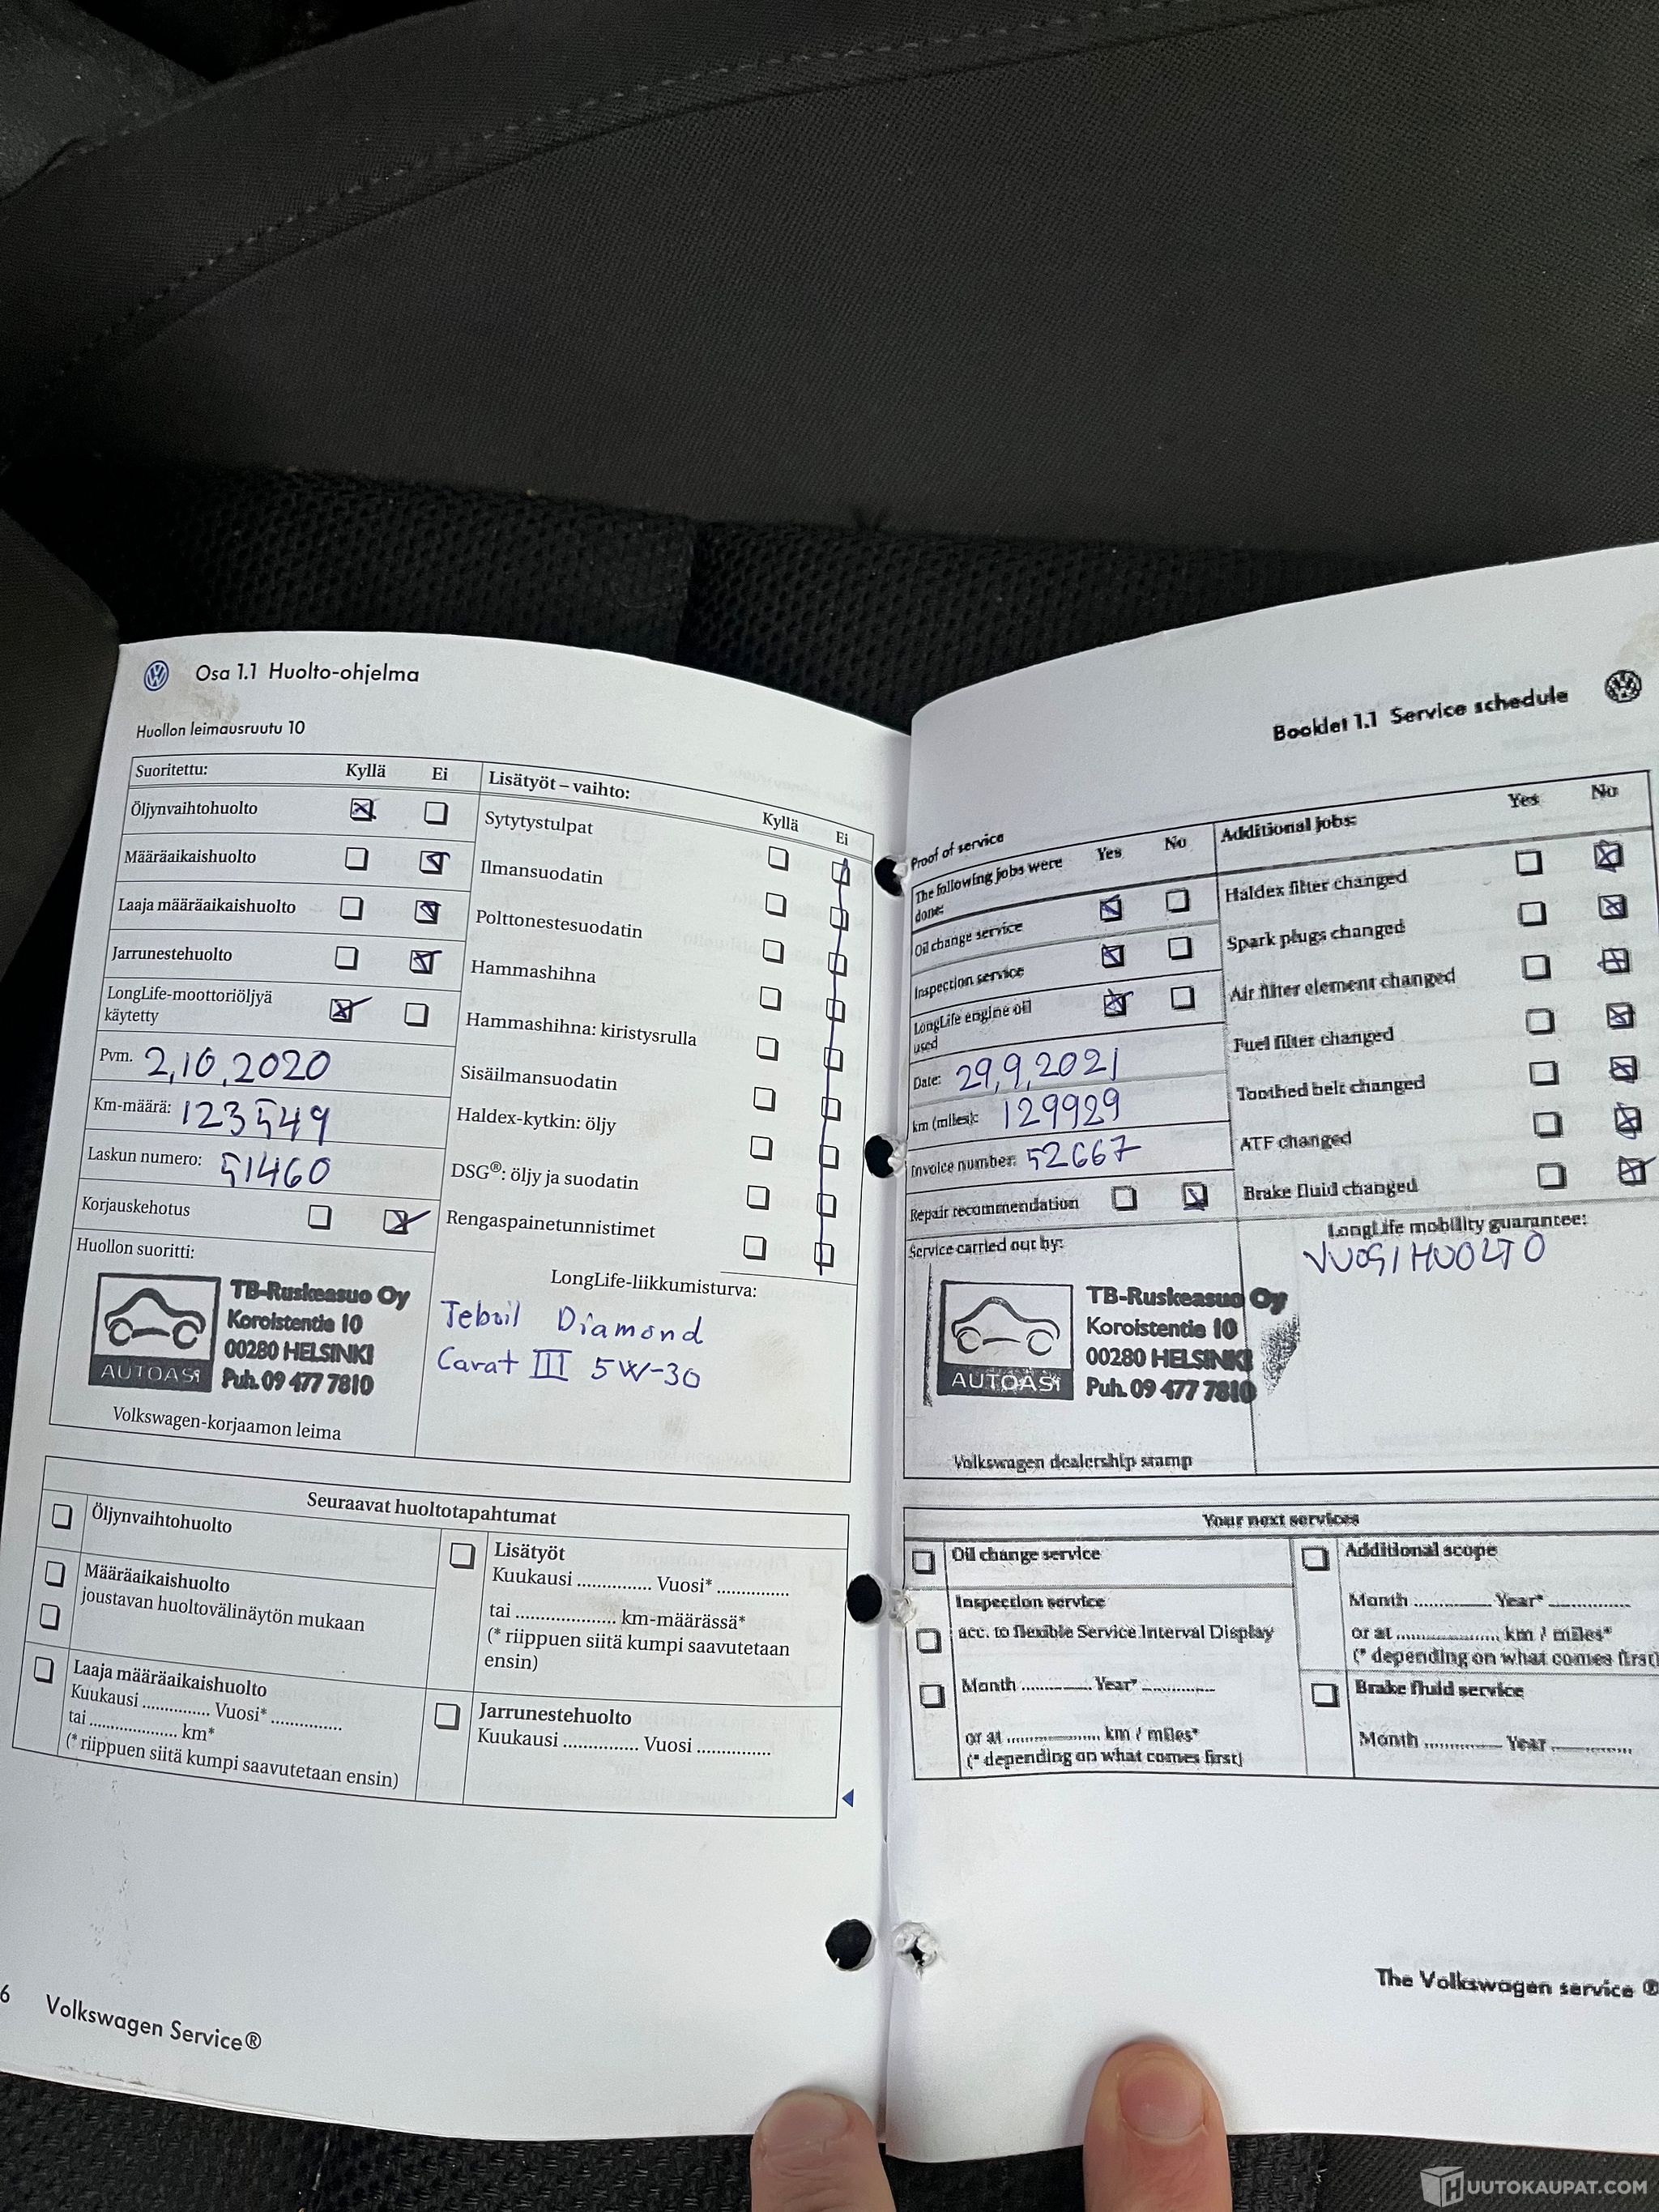 Osa 1.1 Huolto-ohjelma
Huollon leimausruutu 10
Suoritettu: Kyllä Ei
Öljynvaihtohuolto
Määräaikaishuolto
Laaja määräaikaishuolto
Jarrunestehuolto
LongLife-moottoriöljyä
käytetty
Pvm. 2.10.2020
Km-määrä: 123549
Laskun numero: 51460
Korjauskehotus
Huollon suoritti:
AUTOASI
TB-Ruskeasuo Oy
Koroistentie 10
00280 HELSINKI
Puh. 09 477 7810
Volkswagen-korjaamon leima
Lisätyöt – vaihto: Kyllä Ei
Sytytystulpat
Ilmansuodatin
Polttonestesuodatin
Hammashihna
Hammashihna: kiristysrulla
Sisäilmansuodatin
Haldex-kytkin: öljy
DSG®: öljy ja suodatin
Rengaspainetunnistimet
LongLife-liikkumisturva:
Teboil Diamond
Carat III 5W-30
Seuraavat huoltotapahtumat
Öljynvaihtohuolto
Määräaikaishuolto
joustavan huoltovälinäytön mukaan
Laaja määräaikaishuolto
Kuukausi .............. Vuosi* ..............
tai .................... km*
(* riippuen siitä kumpi saavutetaan ensin)
Lisätyöt
Kuukausi ............... Vuosi* ...............
tai .................... km-määrässä*
(* riippuen siitä kumpi saavutetaan
ensin)
Jarrunestehuolto
Kuukausi ............... Vuosi ...............
6 Volkswagen Service®
Booklet 1.1 Service schedule
Proof of service
The following jobs were Yes No
done:
Oil change service
Inspection service
LongLife engine oil
used
Date: 29.9.2021
km (miles): 129929
Invoice number: 52667
Repair recommendation
Service carried out by:
AUTOASI
TB-Ruskeasuo Oy
Koroistentie 10
00280 HELSINKI
Puh. 09 477 7810
Volkswagen dealership stamp
Additional jobs: Yes No
Haldex filter changed
Spark plugs changed
Air filter element changed
Fuel filter changed
Toothed belt changed
ATF changed
Brake fluid changed
LongLife mobility guarantee:
VUOSIHUOLTO
Your next services
Oil change service
Inspection service
acc. to flexible Service Interval Display
Month ............ Year* ............
or at ................ km / miles*
(* depending on what comes first)
Additional scope
Month ............ Year* ............
or at ................ km / miles*
(* depending on what comes first)
Brake fluid service
Month ............ Year ............
The Volkswagen service ®
HUUTOKAUPAT.COM